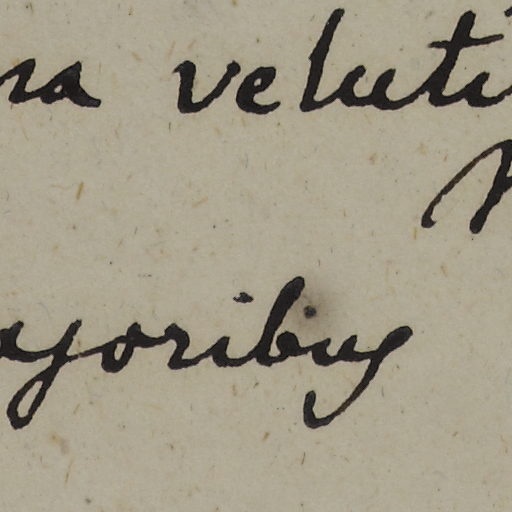 na veluti
ajoribus